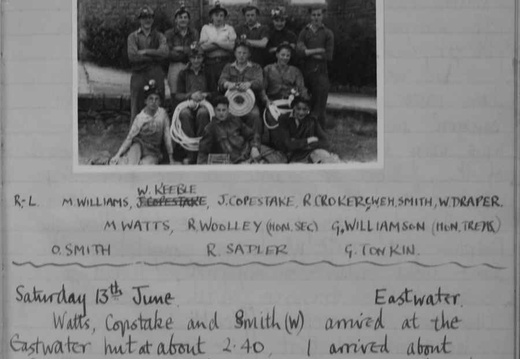 W. KEEBLE
R.-L. M WILLIAMS, J.COPESTAKE, J.COPESTAKE, R CROKER, W.E.H. SMITH, W. DRAPER.
M WATTS, R WOOLLEY (HON. SEC) G, WILLIAMSON (HON. TREAS)
O. SMITH R. SATLER G. TONKIN
Saturday 13th June. Eastwater.
Watts, Copstake and Smith (W) arrived at the
Eastwater hut at about 2.40, I arrived about